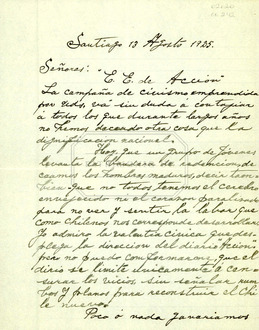 Santiago 13 Agosto 1925.
Señores:
"C. E. de Acción"
La campaña de civismo emprendida
por Uds, vá sin duda á contajiar
á todos los que durante largos años
no hemos deceado otra cosa que la
dignificación nacional.
Hoy, que un grupo de jóvenes
levanta la bandera de redención, de-
bemos los hombres maduros, decir tam-
bien que no todos tenemos el cerebro
envejecido ni el corazon paralizado
para no ver y sentir la labor que
como Chilenos nos corresponde desarrollar.
Yo admiro la valentia civica que des-
pleja la dirección del diario "Acción"
pero no puedo conformarme, que el
diario se limite unicamente a cen-
surar los vicios. Sin señalar rum-
bos y planos para reconstruir el Chi-
le nuevo.
Poco ó nada ganariamos